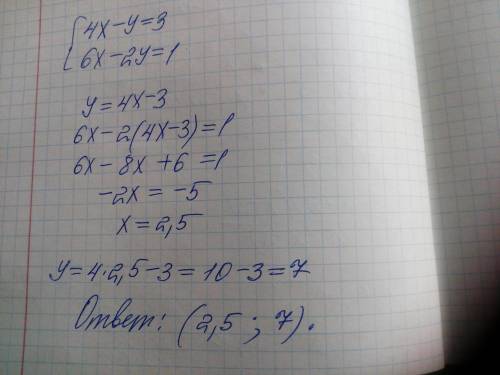 {4x-y=3
{6x-2y=1
y=4x-3
6x-2(4x-3)=1
6x-8x+6=1
-2x=-5
x=2,5
y=4·2,5-3=10-3=7
Ответ: (2,5; 7).